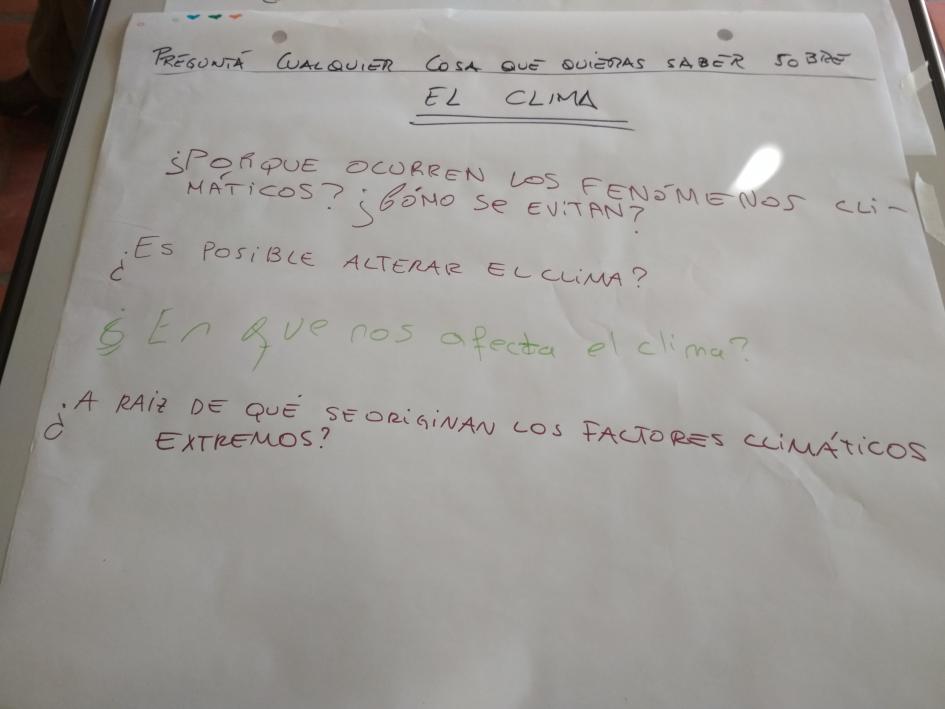 PREGUNTÁ CUALQUIER COSA QUE QUIERAS SABER SOBRE
EL CLIMA
¿PORQUE OCURREN LOS FENÓMENOS CLI-
MÁTICOS? ¿CÓMO SE EVITAN?
¿ES POSIBLE ALTERAR EL CLIMA?
¿En que nos afecta el clima?
¿A RAIZ DE QUÉ SE ORIGINAN LOS FACTORES CLIMÁTICOS
EXTREMOS?